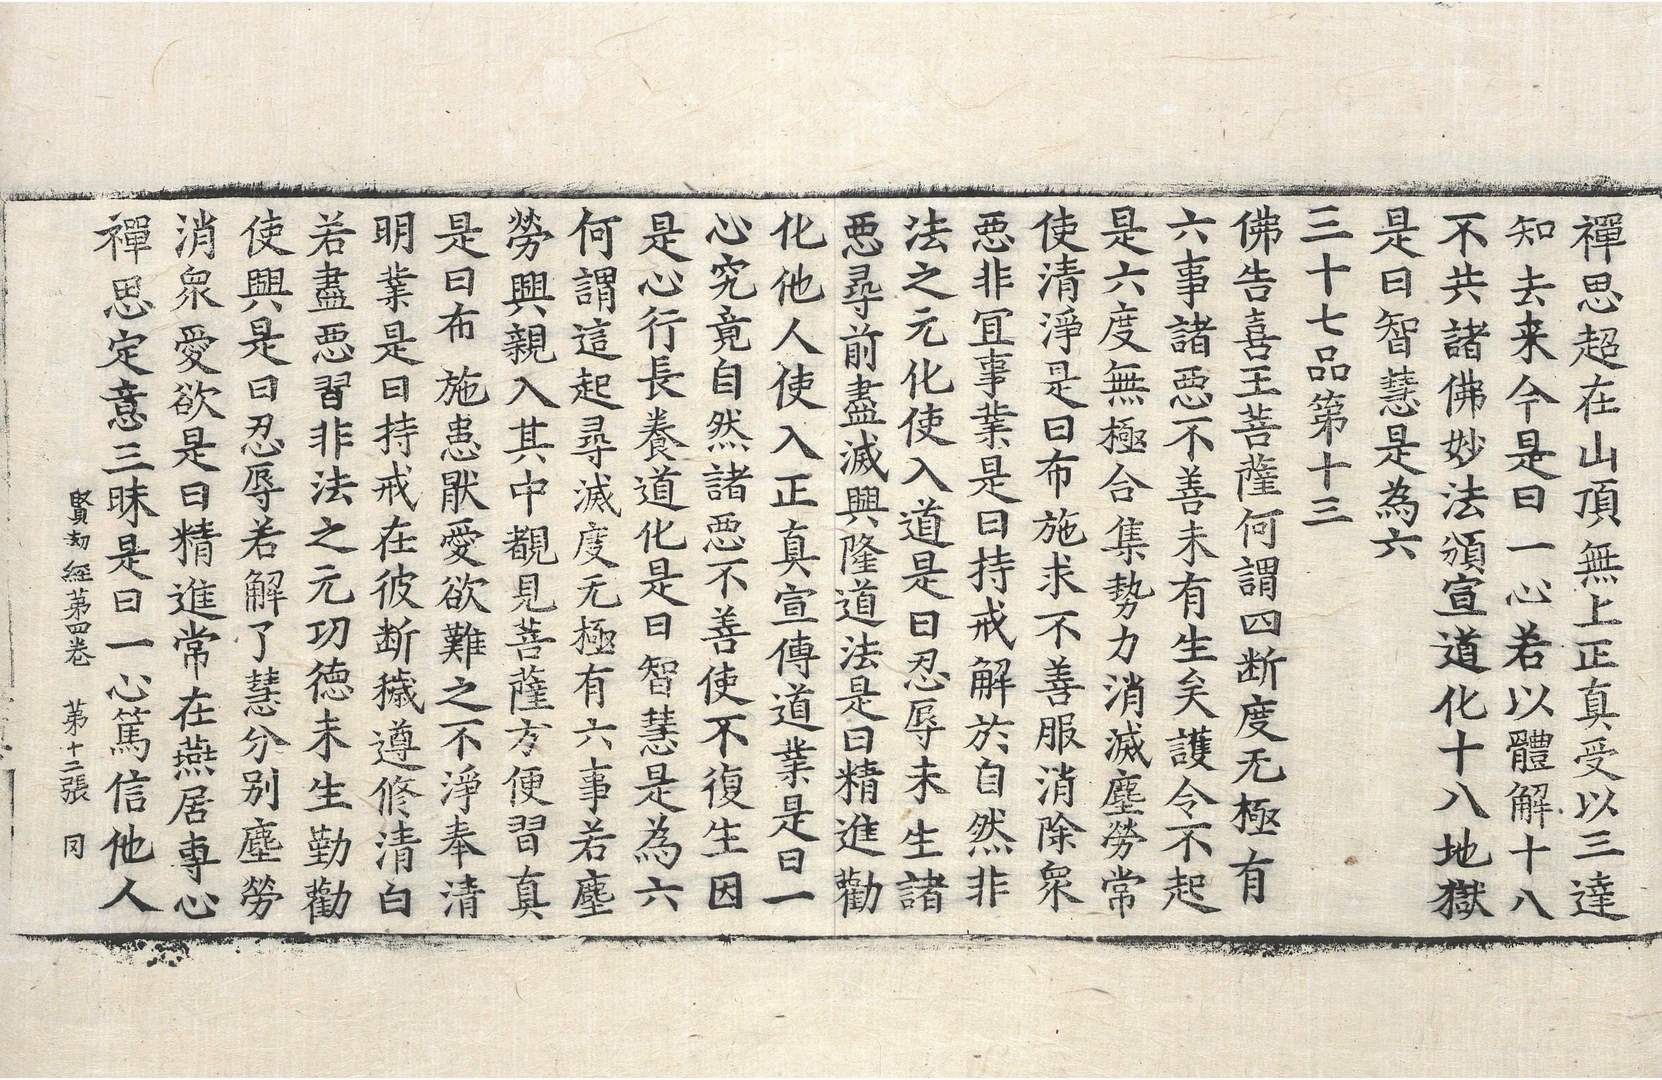 禪思超在山頂無上正真受以三達
知去来今是曰一心若以體解十八
不共諸佛妙法頒宣道化十八地獄
是曰智慧是為六
三十七品第十三
佛告喜王菩薩何謂四断度无極有
六事諸惡不善未有生矣護令不起
是六度無極合集勢力消滅塵勞常
使清淨是曰布施求不善服消除衆
惡非冝事業是曰持戒解於自然非
法之元化使入道是曰忍辱未生諸
惡尋前盡滅興隆道法是曰精進勸
化他人使入正真宣傳道業是曰一
心究竟自然諸惡不善使不復生因
是心行長養道化是曰智慧是為六
何謂這起尋滅度无極有六事若塵
勞興親入其中覩見菩薩方便習真
是曰布施患猒愛欲難之不淨奉清
明業是曰持戒在彼断穢遵修清白
若盡惡習非法之元功德未生勤勸
使興是曰忍辱若解了慧分别塵勞
消衆愛欲是曰精進常在燕居専心
禪思定意三昧是曰一心篤信他人
賢劫經苐四卷 苐十二張 同